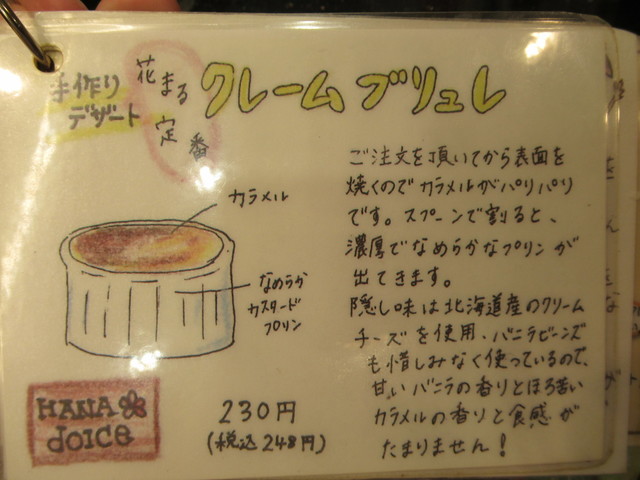 手作り
デザート
花まる
定番
クレームブリュレ
カラメル
なめらか
カスタード
プリン
HANA
doICE
230円
(税込248円)
ご注文を頂いてから表面を
焼くのでカラメルがパリパリ
です。スプーンで割ると、
濃厚でなめらかなプリンが
出てきます。
隠し味は北海道産のクリーム
チーズを使用、バニラビーンズ
も惜しみなく使っているので、
甘いバニラの香りとほろ苦い
カラメルの香りと食感が
たまりません!